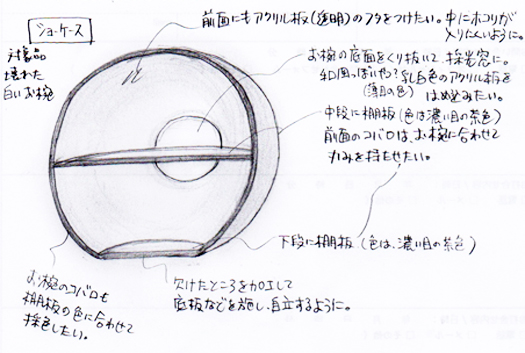 ショーケース
対象品
壊れた
白いお椀
前面にもアクリル板(透明)のフタをつけたい。中にホコリが
入りにくいように。
お椀の底面をくり抜いて、採光窓に。
和風っぽいや?乳白色のアクリル板を
(薄目の色) はめ込みたい。
中段に棚板(色は濃い目の茶色)
前面のコバ口は、お椀に合わせて
丸みを持たせたい。
下段に棚板(色は、濃い目の茶色)
欠けたところを加工して
底板などを施し、自立するように。
お椀のコバ口も
棚板の色に合わせて
採色したい。